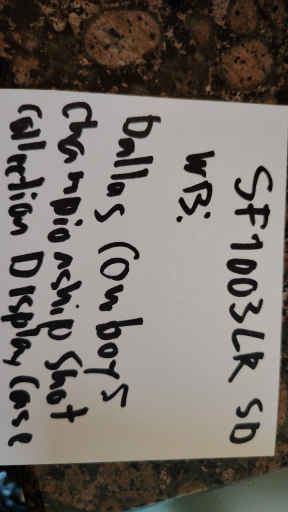 SF1003LR SD
WB:
Dallas Cowboys
Championship Shot
Collection Display Case